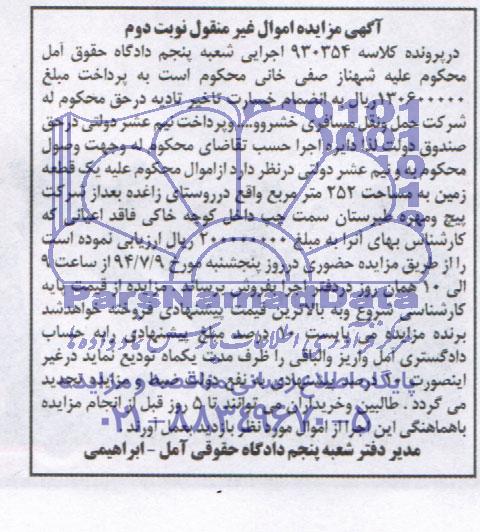 آگهی مزایده اموال غیر منقول نوبت دوم
درپرونده کلاسه ۹۳۰۳۵۴ اجرایی شعبه پنجم دادگاه حقوق آمل
محکوم علیه شهناز صفی خانی محکوم است به پرداخت مبلغ
ریال به انضمام خسارت تاخیر تادیه درحق محکوم له
شرکت حمل ونقل مسافری خشررو.....وپرداخت نیم عشر دولتی درحق
صندوق دولت لذا دایره اجرا حسب تقاضای محکوم له وجهت وصول
محکوم به و نیم عشر دولتی درنظر دارد ازاموال محکوم علیه یک قطعه
زمین به مساحت ۲۵۲ متر مربع واقع درروستای زاغده بعداز شرکت
پیچ ومهره طبرستان سمت چپ داخل کوچه خاکی فاقد اعیانی که
کارشناس بهای آنرا به مبلغ ۲۰۰۰۰۰۰۰۰ ریال ارزیابی نموده است
را از طریق مزایده حضوری درروز پنجشنبه مورخ ۹۴/۷/۹ از ساعت ۹
الی ۱۰ همان روز دردفتر اجرا بفروش برساند . مزایده از قیمت پایه
کارشناسی شروع وبه بالاترین قیمت پیشنهادی فروخته خواهدشد
برنده مزایده می بایست درصد مبلغ پیشنهادی رابه حساب
دادگستری آمل واریز والباقی را ظرف مدت یکماه تودیع نماید درغیر
اینصورت درصد پیشنهادی به نفع دولت ضبط و مزایده تجدید
می گردد . طالبین وخریداران می توانند تا ۵ روز قبل از انجام مزایده
باهماهنگی این اجرا از اموال موردنظر بازدید بعمل آورند
مدیر دفتر شعبه پنجم دادگاه حقوقی آمل - ابراهیمی
ParsNamadData
پایگاه اطلاع رسانی مناقصه و مزایده
۰۲۱-۸۸۳۴۹۶۷۰-۵